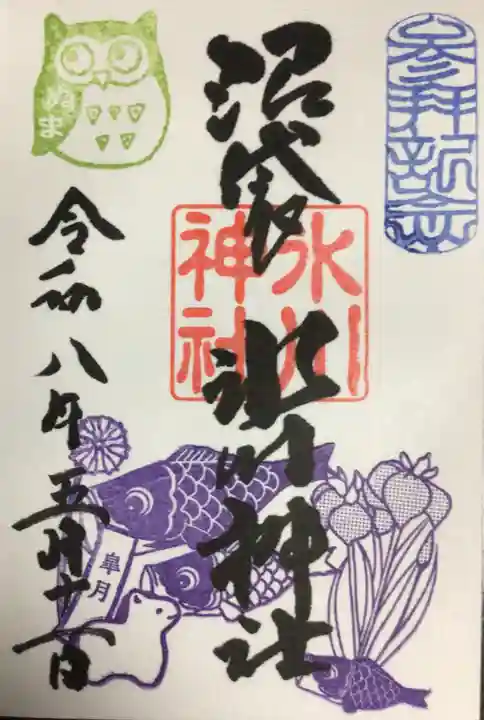 参拝記念
沼袋
氷川神社
氷川
神社
令和八年五月十一日
ぬま
皐月